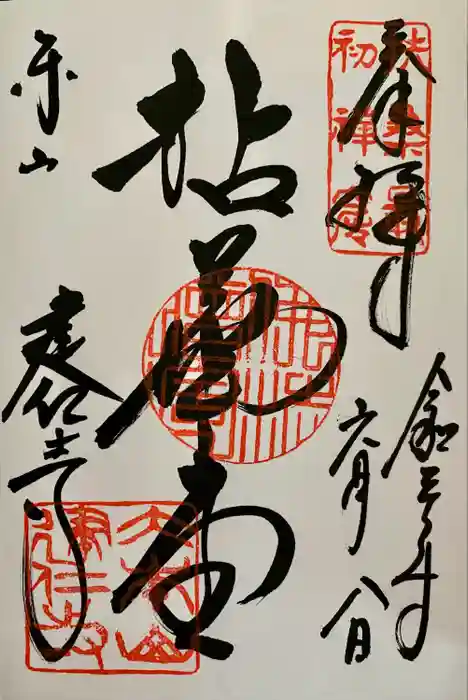 扶桑最
初禅窟
奉拝
令和三年
六月八日
拈華堂
東山
建仁寺
大本山
建仁寺